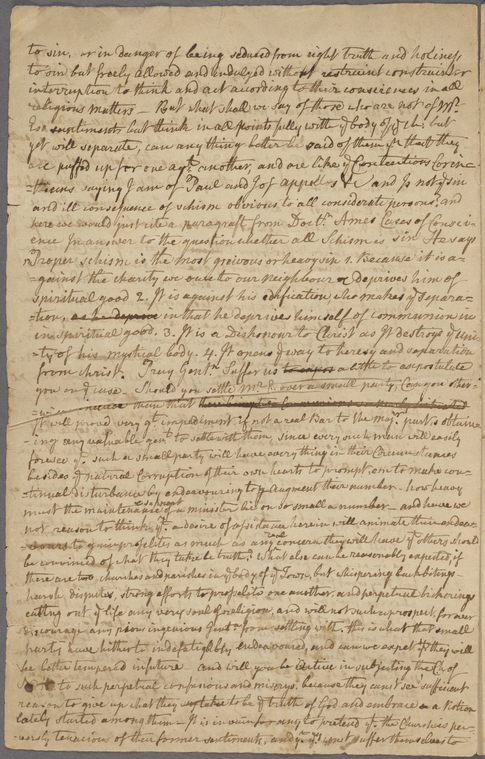 to sin, or in danger of being seduced from right truth and holiness
to sin but freely allowed and indulged without restraint constraint or
interruption to think and act according to their consciences in all
religious matters But what shall we say of those who are not of Mr.
sentiments but think in all points fully with ye body of ye Chh, but
yet will separate, can any thing better be said of them yn that they
are puffed up for one agt another, and are like ye Contentious Corin-
=thians saying I am of Paul and I of Appollos &c and Is not ye sin
and ill consequence of schism obvious to all considerate persons? and
here we would just cite a paragraft from Doctr. Ames Cases of Consci-
ence In answer to the question whether all Schism is sin He says
Proper schism is the most greivous or heavy sin 1. Because it is a-
=gainst the charity we owe to our Neighbour & deprives him of
spiritual good 2. It is against his edification, who makes ye separa-
=tion, as he deprive in that he deprives himself of communion in
in spiritual good. 3. It is a Dishonour to Christ as It destroys ye uni-
=ty of his mystical body. 4. It opens ye way to heresy and separation
from Christ. Pray Gentn. Suffer us a little to expostulate
your ye case. Should you settle Mr. over a small party, Can you other-
=wise than that
It will proud very gt. impediment if not a real Bar to the majr. part's obtain-
ing any valuable gent to settle with them, since every such man will easily
foresee yt such a small party will have every thing in their Circumstances
besides ye natural Corruption of their own hearts to prompt em to make con-
=tinual disturbance by endeavouring to augment their number how heavy
must the maintenance of a minister lie on so small a number and have we
not reason to think yt a desire of assistance herein will animate their endea-
=vours to gain proselites as much as any real concern they will have yt others should
be convinced of what they take to be truth? What else can be reasonably expected if
there are two churches and parishes in ye body of ye Town, but whispering backbitings
harsh disputes, strong efforts to proselite one another, and perpetual bickerings
eating out ye life and very soul of religion, and will not such a prospect for ever
discourage any pious ingenious Gentn from settling with this is what that small
party have hitherto indefatigably endeavoured, and can we expect yt they will
be better temper'd in future and will you be active in subjecting the Ch. of
to such perpetual confusions and miserys, because they can't see sufficient
reason to give up what they take to be ye truth of God and embrace a Notion
lately started among them It is in vain for any to pretend yt the Church is per-
=versly tenacious of their former sentiments, and yt ym not suffer themselves to